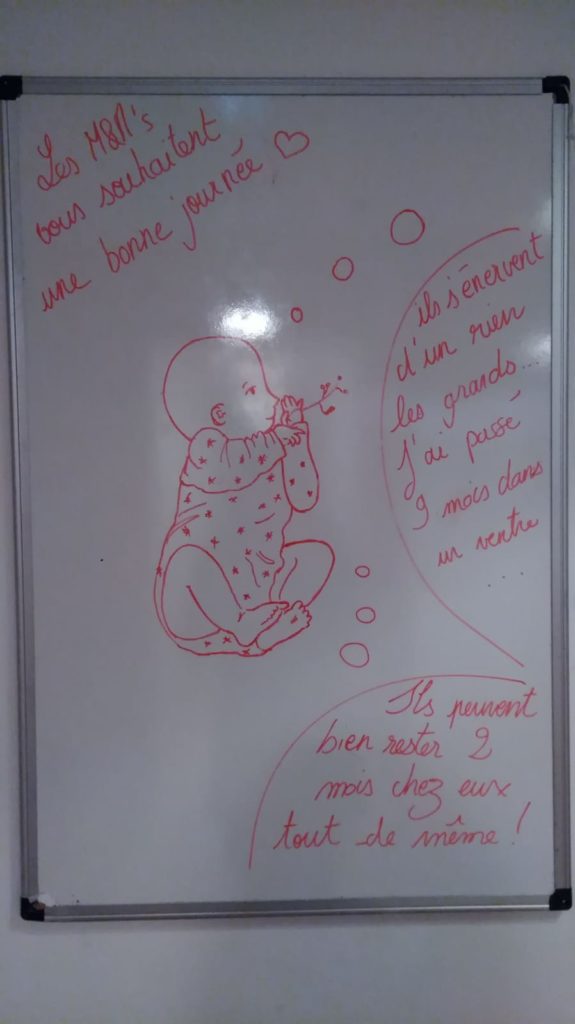 Les M&M's
vous souhaitent
une bonne journée ♡
ils s'énervent
d'un rien
les grands...
J'ai passé
9 mois dans
un ventre
...
Ils peuvent
bien rester 2
mois chez eux
tout de même !